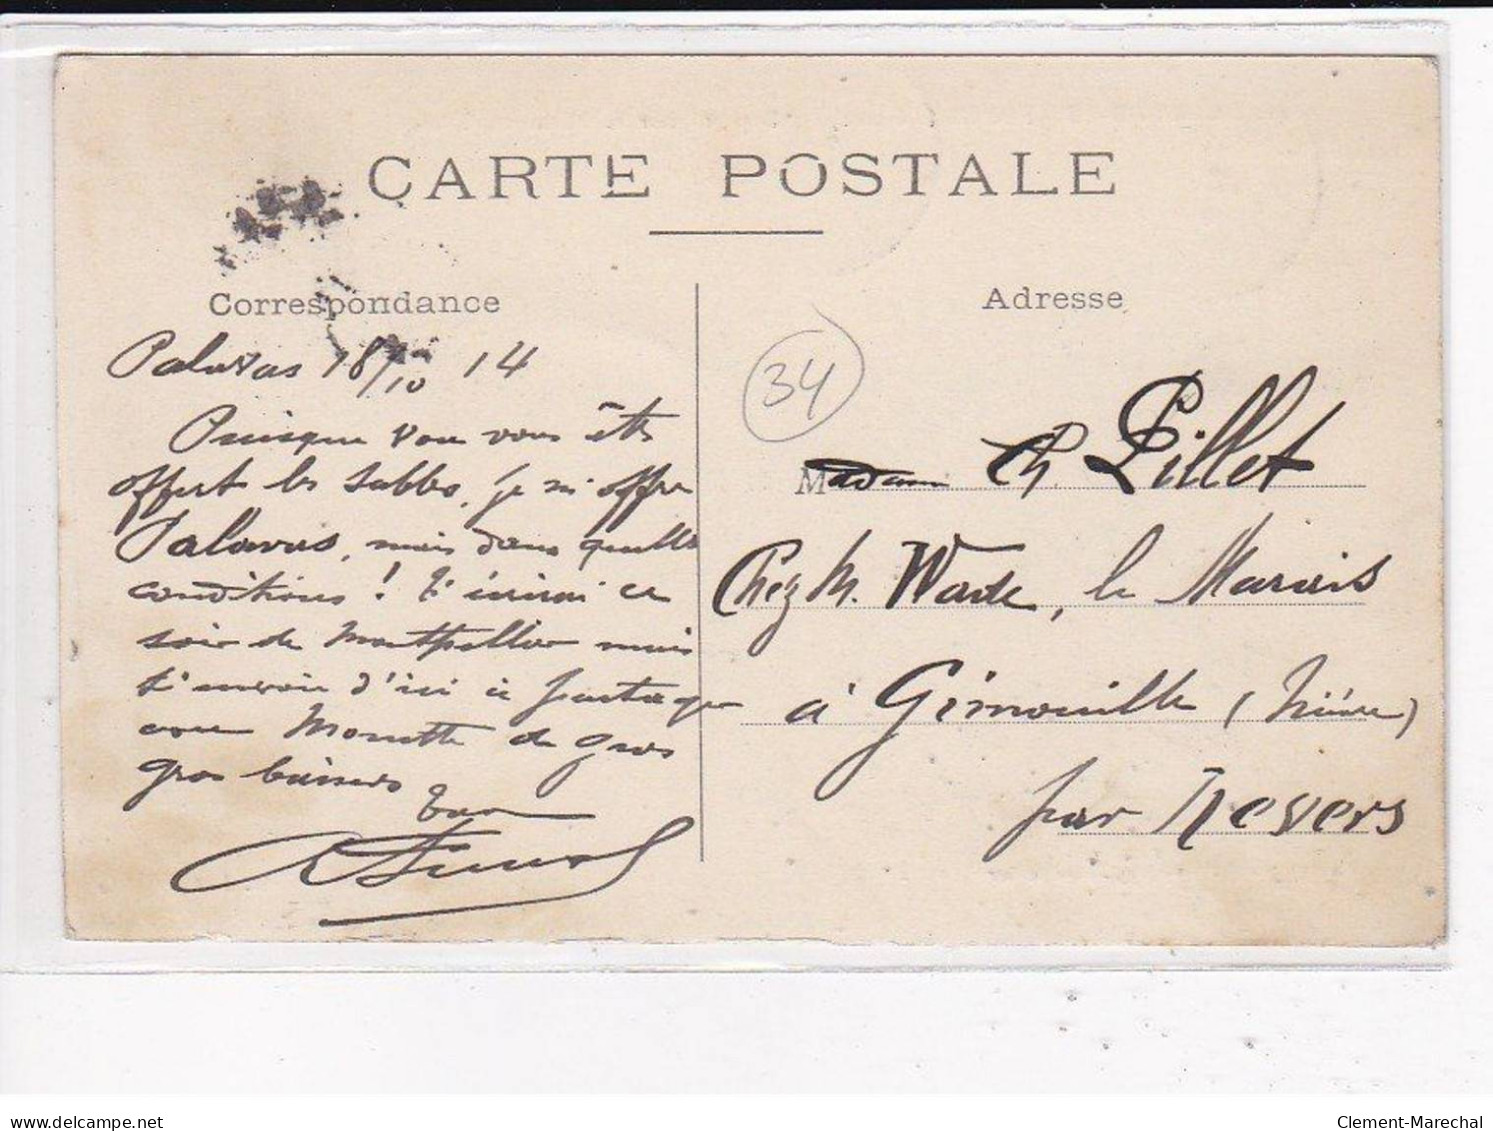 CARTE POSTALE
Correspondance
Adresse
Palavas 18/10 14
34
Puisque vous vous êtes
offert les Sables, je m'offre
Palavas, mais dans quelles
conditions ! t'écrirai ce
soir de Montpellier mais
t'envoie d'ici à partager
avec Monette de gros
gros baisers
Ton
Madame Ch Pillet
Chez M. Wade, le Marais
à Gimouille (Nièvre)
par Nevers
delcampe.net
Clement-Marechal